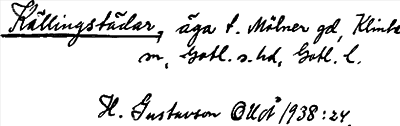 Källingstädar, äga t. Mölner gd, Klinte
m, Gotl. s. hd, Gotl. l.
H. Gustavson OUÅ 1938:24.